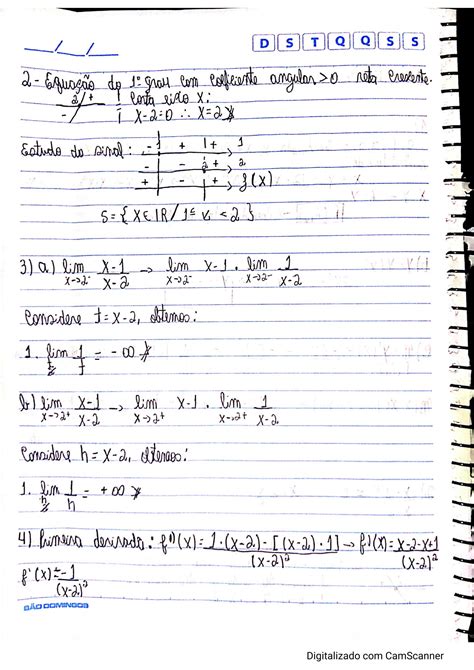 D S T Q Q S S
2 - Equação do 1º grau com coeficiente angular > 0 reta crescente.
2/+ | Corta eixo X:
- | X-2=0 ∴ X=2
Estudo do sinal: - 1 + 1+ → 1
- - 2 + → 2
+ - + → f(X)
S = { X ∈ IR / 1 ≤ < 2 }
3) a) lim X-1 / X-2 → lim X-1 . lim 1 / X-2
X→2⁻ X→2⁻ X→2⁻
Considere t = X-2, obtemos:
1. lim 1/t = -∞
b) lim X-1 / X-2 → lim X-1 . lim 1 / X-2
X→2⁺ X→2⁺ X→2⁺
Considere h = X-2, obtemos:
1. lim 1/h = +∞
4) Primeira derivada: f'(X) = 1·(X-2) - [(X-2)·1] / (X-2)² → f'(X) = X-2-X+1 / (X-2)²
f'(X) = -1 / (X-2)²
SÃO DOMINGOS
Digitalizado com CamScanner